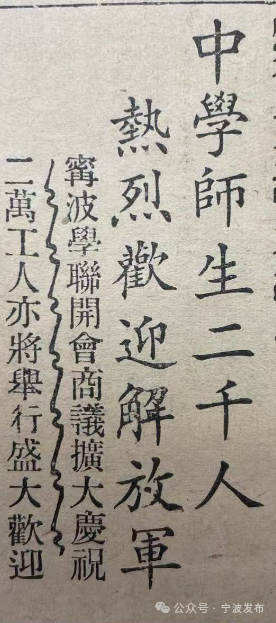 中學師生二千人
熱烈歡迎解放軍
甯波學聯開會商議擴大慶祝
二萬工人亦將舉行盛大歡迎
公众号·宁波发布